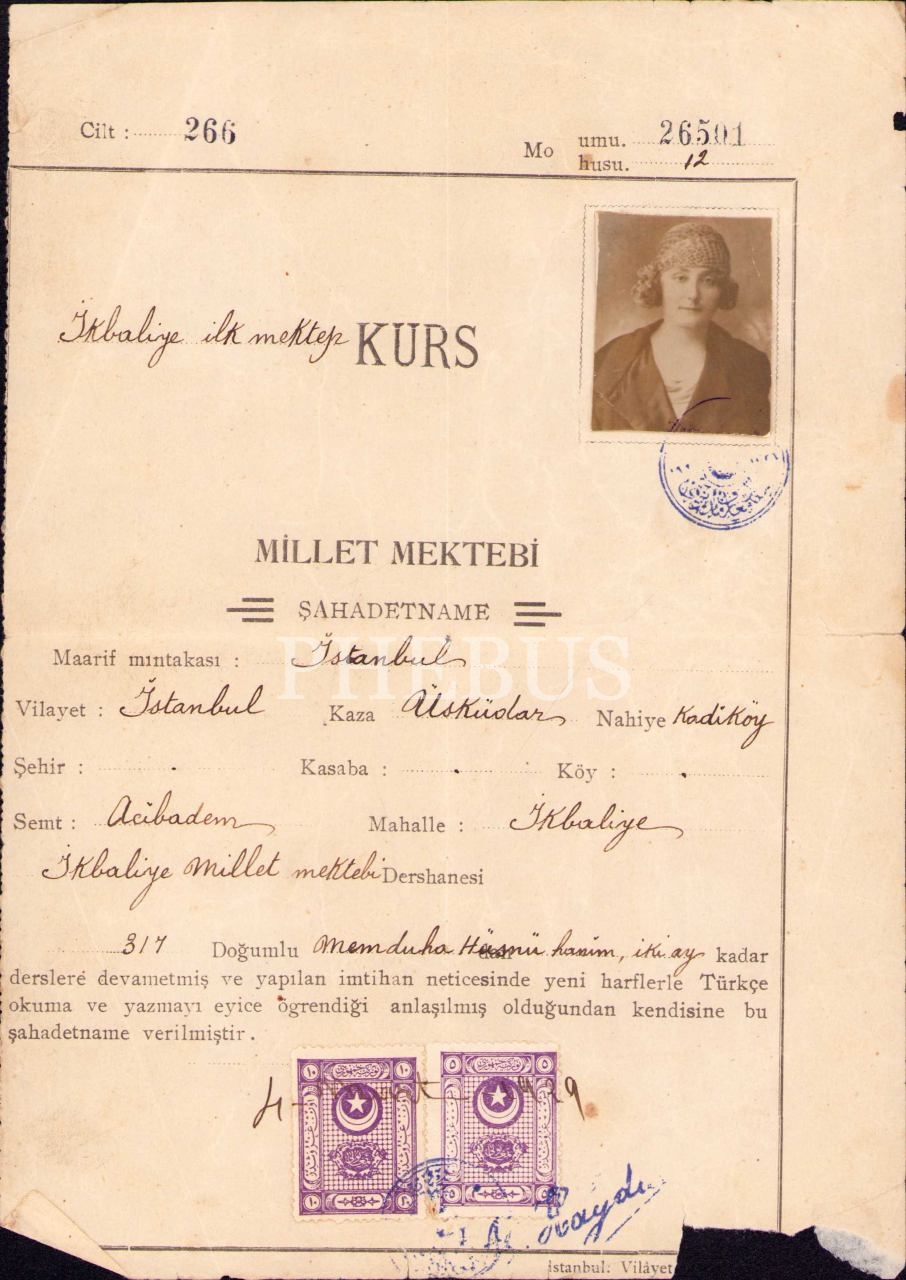 Cilt : 266
Mo umu. 26501
husu. 12
İkbaliye ilk mektep KURS
MİLLET MEKTEBİ
ŞAHADETNAME
PHEBUS
Maarif mıntakası : İstanbul
Vilayet : İstanbul Kaza Üsküdar Nahiye Kadiköy
Şehir : . Kasaba : . Köy : .
Semt : Acibadem Mahalle : İkbaliye
İkbaliye Millet mektebi Dershanesi
317 Doğumlu Memduha Hüsnü hanim, iki ay kadar
derslere devametmiş ve yapılan imtihan neticesinde yeni harflerle Türkçe
okuma ve yazmayı eyice ögrendiği anlaşılmış olduğundan kendisine bu
şahadetname verilmiştir .
4- 1929
١٠ ١٠ ٥ ٥
١٠ ١٠ ٥
İstanbul: Vilâyet